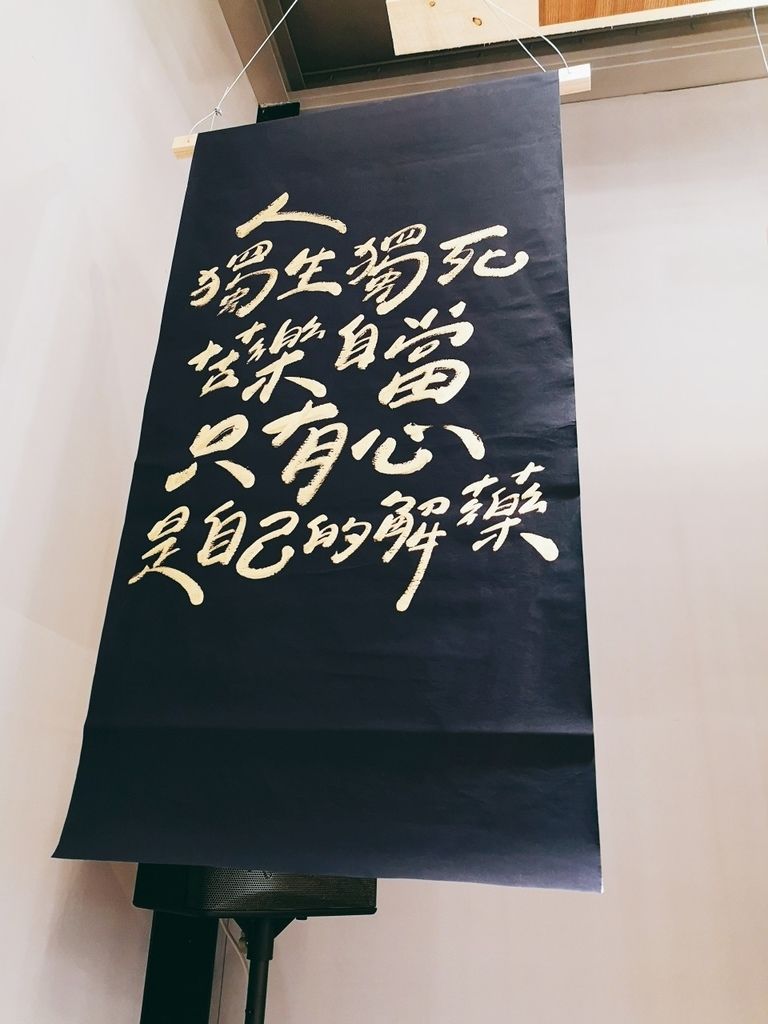 人
獨生獨死
苦樂自當
只有心
是自己的解藥